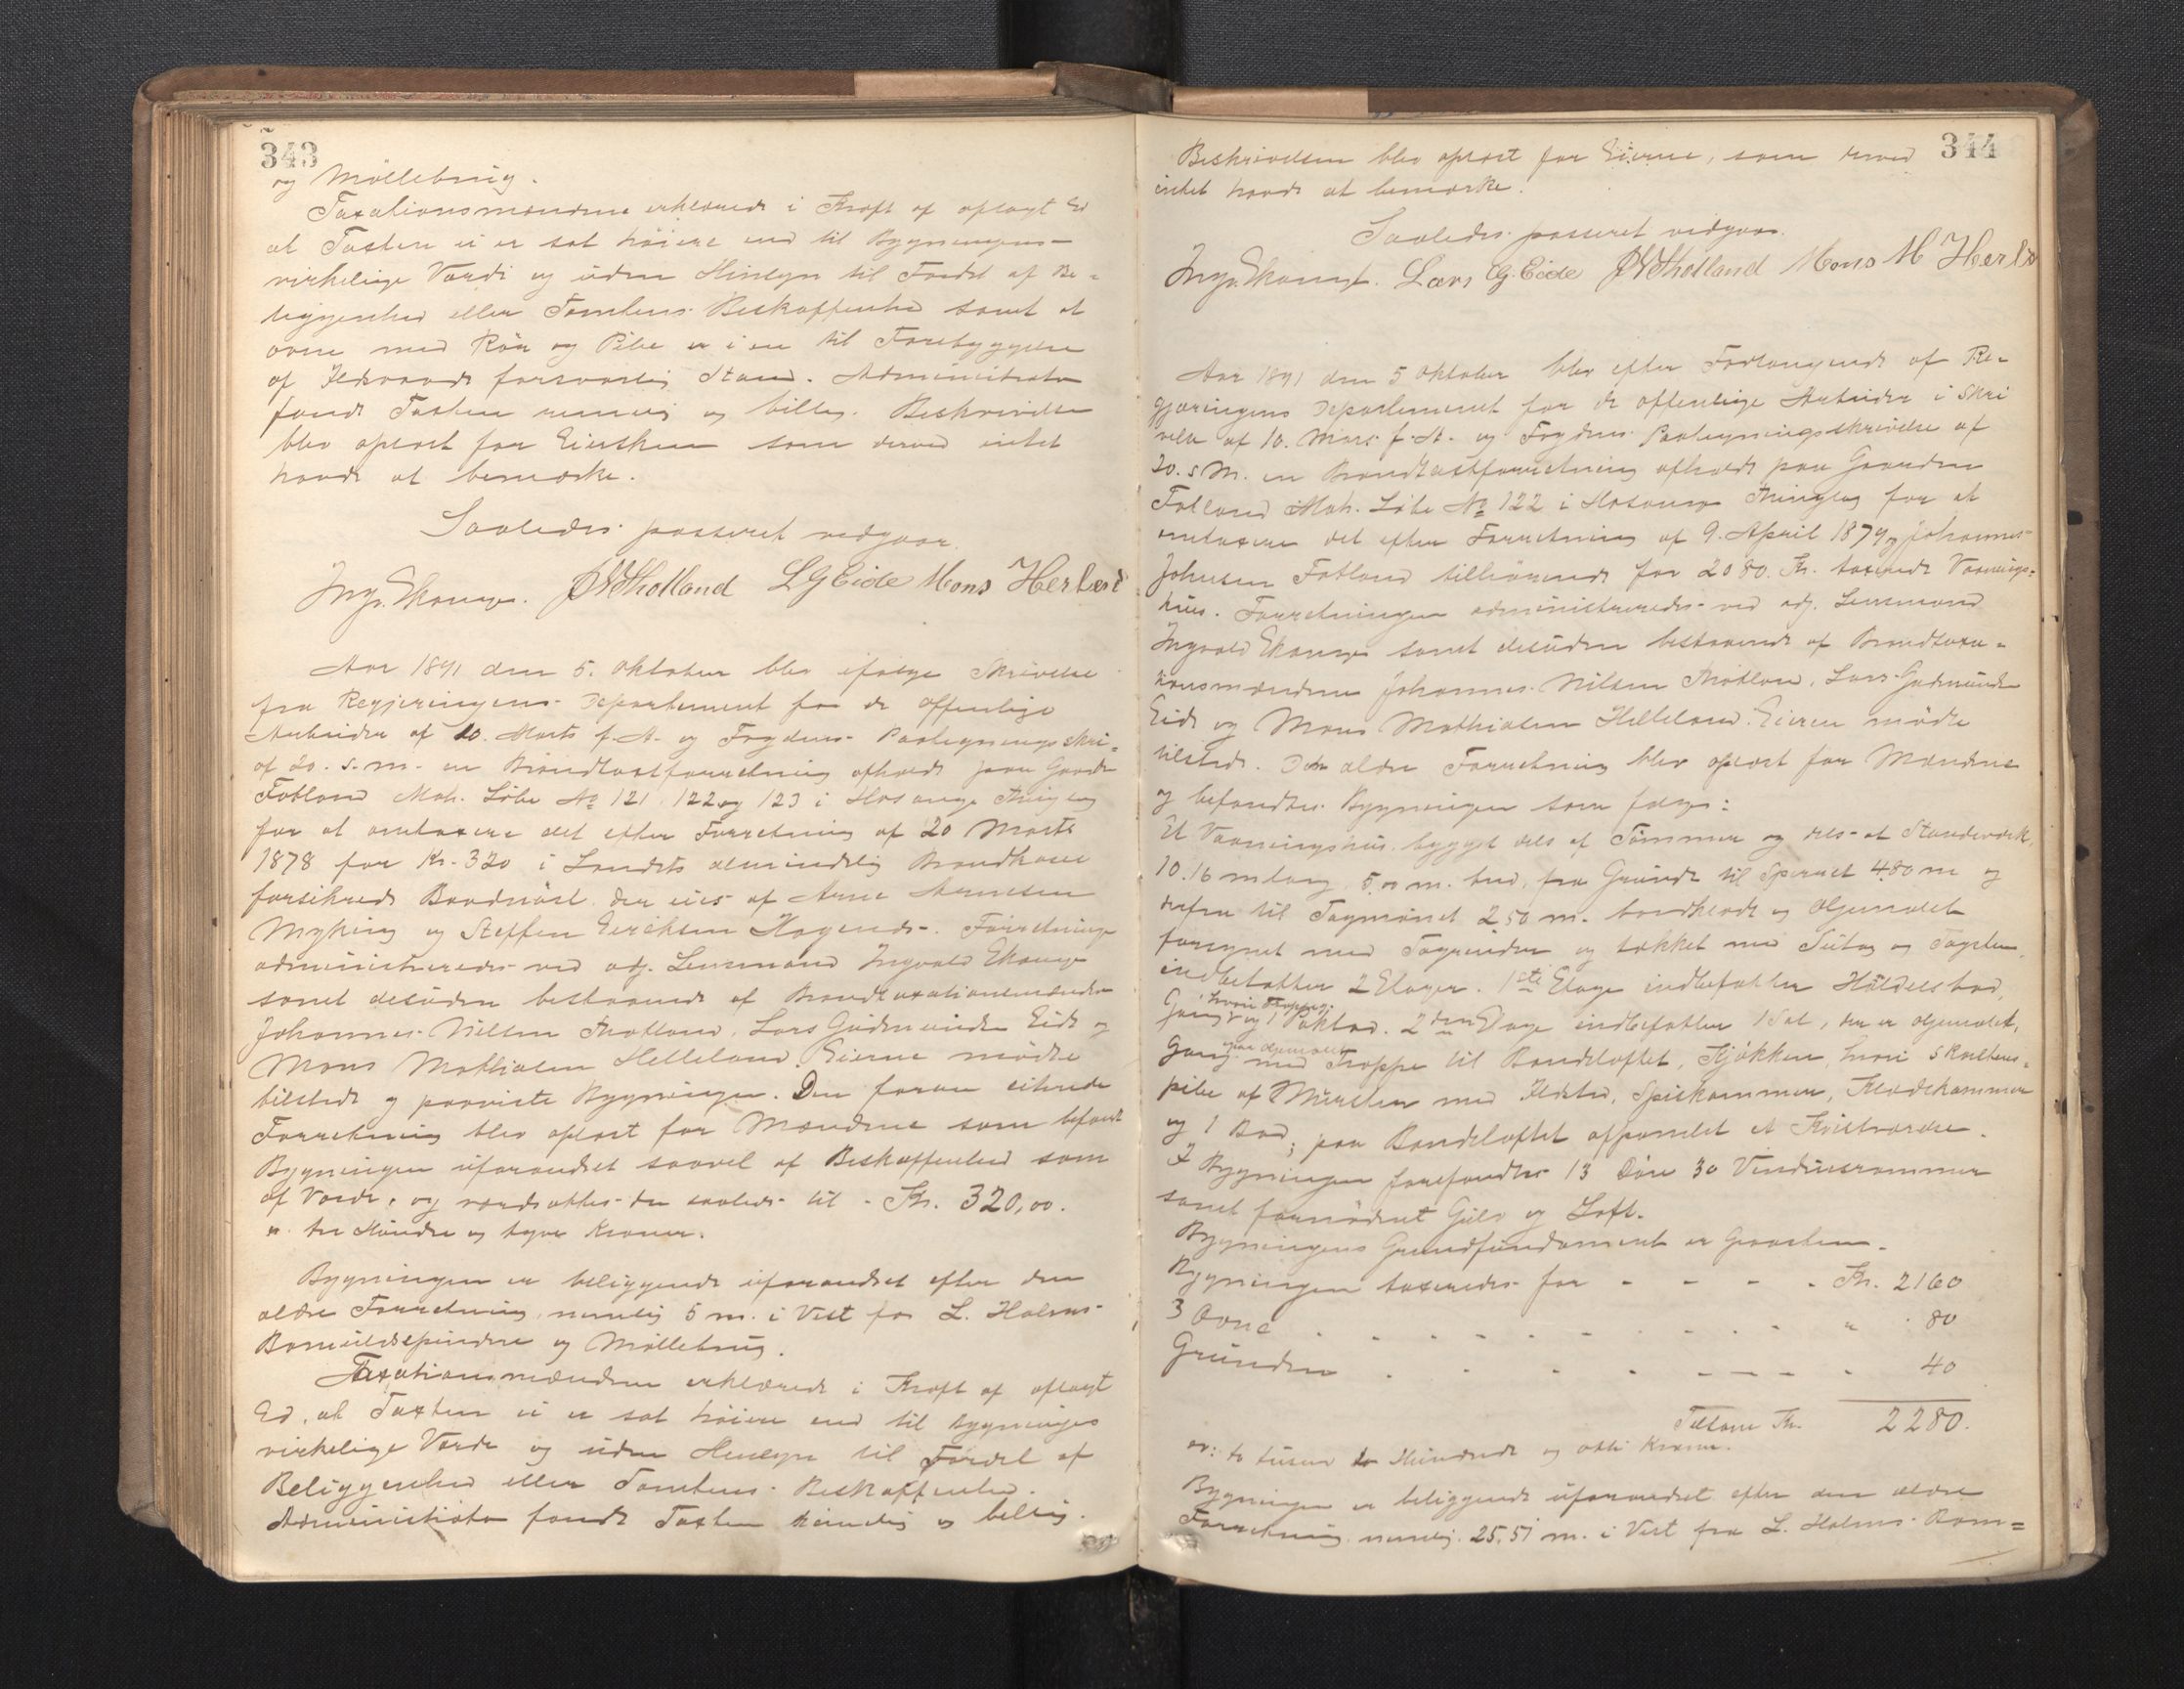 343
og Møllebrug.
Taxationsmændene erklærede i Kraft af aflagt Ed
at Taxten ei er sat høiere end til Bygningens
virkelige Værdi og uden Hinsyn til Fordel af Be-
liggenhed eller Tomtens Beskaffenhed samt at
ovne med Rör og Pibe er i en til Forebyggelse
af Ildsvaade forsvarlig Stand. Administrator
fandt Taxten rimelig og billig. Beskrivelse
blev oplæst for Eiersken som derved intet
havde at bemærke.
Saaledes passeret vedgaar.
Ingv. Ekanger. JNTholland LGEide Mons Herland
Aar 1891 den 5. Oktober blev ifølge Skrivelse
fra Regjeringens Departement for de Offentlige
Arbeider af 10. Marts f. A. og Fogdens Paalegningsskri-
af 20. s. m. en Brandtaxtforretning afholdt paa Gaarden
Fotland Mat. Løbe No 121, 122 og 123 i Hosanger Thinglag
for at omtaxere det efter Forretning af 20 Marts
1878 for Kr. 320 i Landets almindelig Brandkasse
forsikrede Baadnöst der eies af Arne Arnesen
Myking og Steffen Eeriksen Hagends. Forretninge
administreredes ved adj. Lensmand Ingvald Ekanger
samt desuden bestaaende af Brandtaxationsmændene
Johannes Nilsen Thotland, Lars Gudmundsen Eide og
Mons Mathiasen Helleland. Eierne mödte
tilstede og paaviste Bygningen. Den foran citerede
Forretning blev oplæst for Mændene som befandt
Bygningen uforandret saavel af Beskaffenhed som
af Værdi, og værdsattes den saaledes til - Kr. 320,00.
tre Hundre og tyve Kroner.
Bygningen er beliggende uforandret efter den
ældre Forretning, nemlig 5 m. i Vest for L. Holms
Bomuldsspinderi og Møllebrug.
Taxationsmændene erklærede i Kraft af aflagt
Ed, at Taxten ei er sat høiere end til Bygninges
virkelige Værdi og uden Hensyn til Fordel af
Beliggenhed eller Tomtens Beskaffenhed.
Administrator fandt Taxten rimelig og billig.
344
Beskrivelsen blev oplæst for Eierne, som derved
intet havde at bemærke.
Saaledes passeret vedgaar.
Ingv. Ekanger. Lars G. Eide JNTholland Mons M Herla
Aar 1891 den 5 Oktober blev efter Forlangende af Re-
gjæringens Departement for de offentlige Arbeider i Skri
velse af 10. Mars f. A. og Fogdens Paalegningsskrivelse af
20. s. M. en Brandtaxtforretning afholdt paa Gaarden
Fotland Mat. Løbe No 122 i Hosanger Thinglag for at
omtaxere det efter Forretning af 9. April 1879 Johannes
Johnsen Fotland tilhørende for 2080 Kr. taxerede Vaanings-
hus. Forretningen administreredes ved adj. Lensmand
Ingvald Ekanger samt desuden bestaaende af Brandtaxa-
tionsmændene Johannes Nilsen Thotland, Lars Gudmunden
Eide og Mons Mathiasen Helleland. Eieren mödte
tilstede. Den ældre Forretning blev oplæst for Mændene
og befandtes Bygningen som følger:
Et Vaaningshus bygget dels af Tömmer og dels af Standværk,
10.16 m lang, 5.00 m. bred, fra Grund til Sperret 4.80 m og
derfra til Tagmönet 2.50 m. bordklædt og oljemalet
forsynet med Tagrender og tækket med Sutag og Tagsten,
indbefatter 2 Etager. 1ste Etage indbefatter Huldelsbod,
Gang hvori Trappe, og 1 Pakbod. 2den Etage indbefatter 1 Sal, der er oljemalet,
Gang med Trappe til Bandeloftet, Kjökken, hvori Skorstens-
pibe af Mursten med Ildsted, Spiskammer, Klædekammer
og 1 Bod; paa Bandeloftet afpanelet et Kvistværelse.
I Bygningen forefandtes 13 Döre 30 Vinduesrammer
samt fornødent Gulv og Loft.
Bygningens Grundfundament er Graasten.
Bygningen taxeredes for - - - - Kr. 2160
3 Ovne . - - - - - - - - " 80
Grunden . - - - - - - - - 40
Tilsam Kr. 2280.
er: to tusen to Hundrede og otti Kroner.
Bygningen er beliggende uforandret efter den ældre
Forretning nemlig 25.51 m. i Vest fra L. Holms Bom=